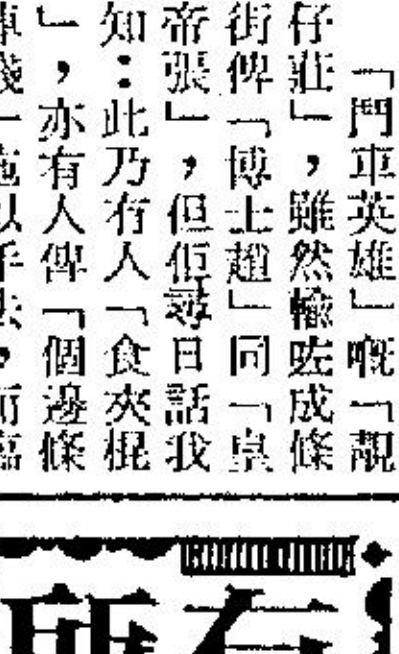 「鬥車英雄」嘅「靚
仔莊」，雖然輸咗成條
街俾「博士趙」同「皇
帝張」，但佢尋日話我
知：此乃有人「食夾棍
」，亦有人俾「個邊條